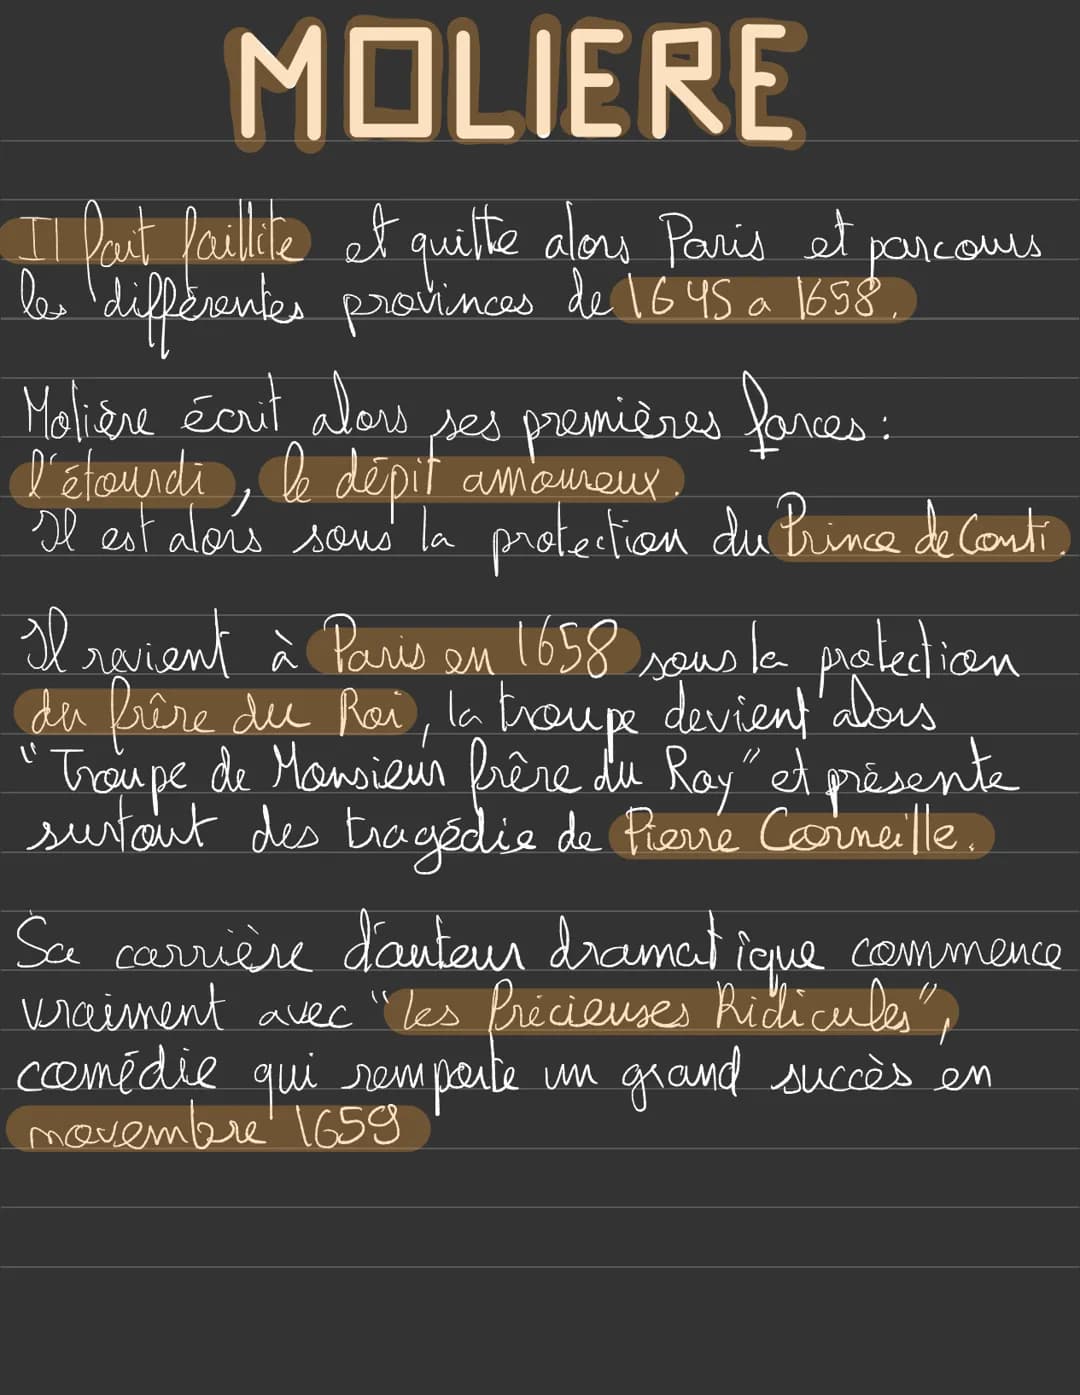 MOLIERE
Il fait faillite et quitte alors Paris et parcours
les différentes provinces de 1645 a 1658.
Molière écrit alors ses premières farces :
l'étourdi, le dépit amoureux.
Il est alors sous la protection du Prince de Conti.
Il revient à Paris en 1658 sous la protection
du frère du Roi, la troupe devient alors
"Troupe de Monsieur frère du Roy" et présente
surtout des tragédie de Pierre Corneille.
Sa carrière d'auteur dramatique commence
vraiment avec "Les Précieuses Ridicules",
comédie qui remporte un grand succès en
novembre 1659